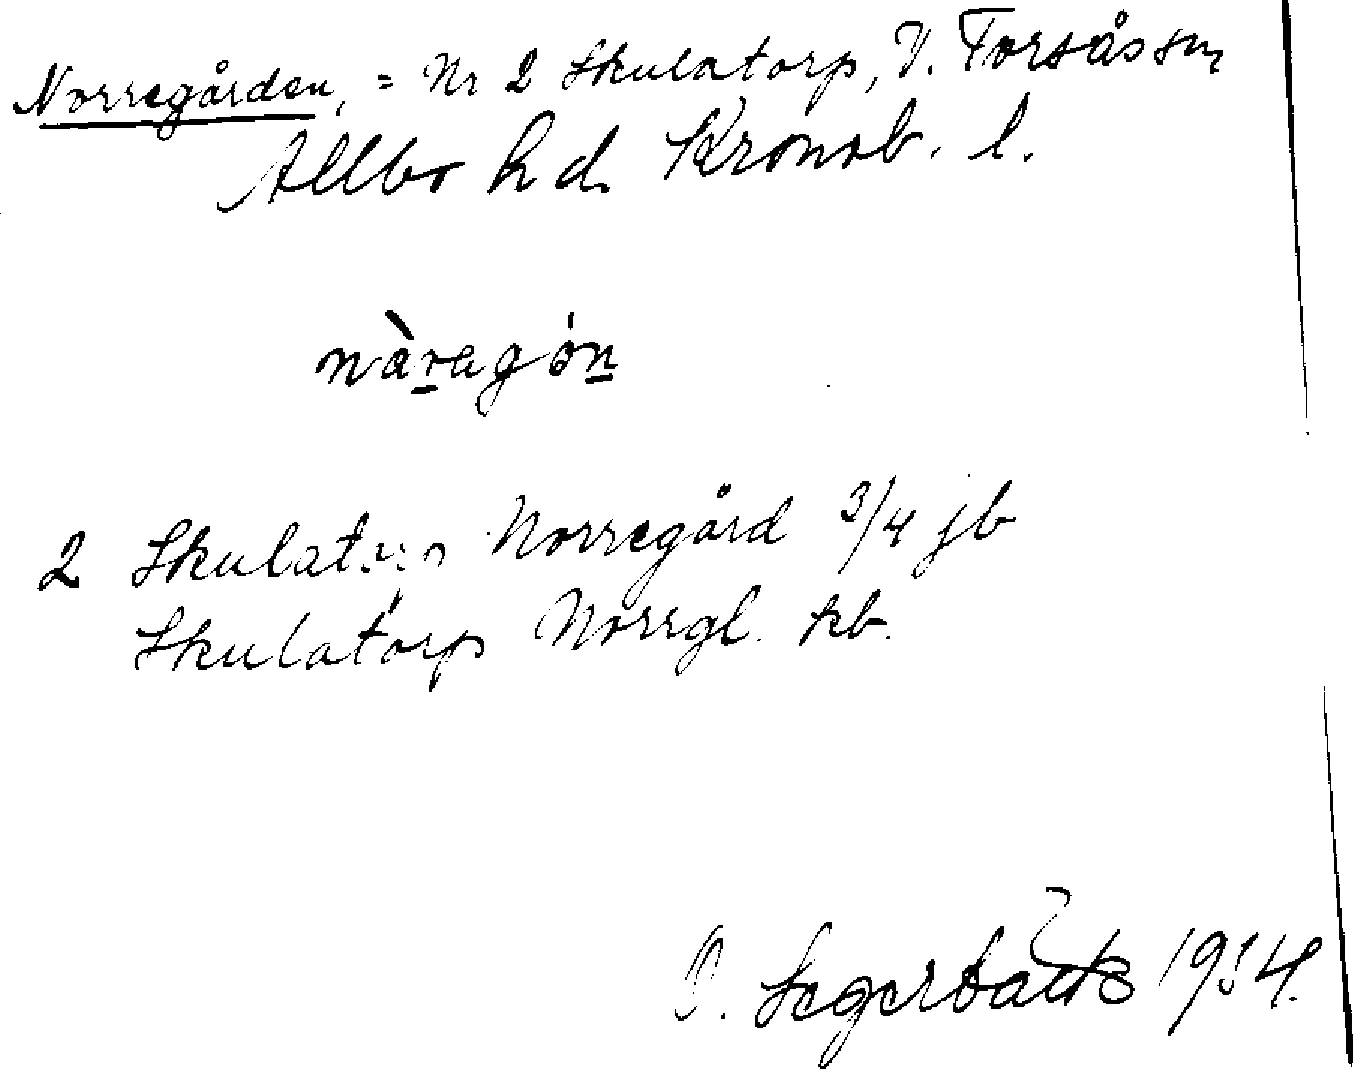 Norregården, = Nr 2 Skulatorp, V. Torsås sn
Allbo hd. Kronob. l.
nàragón
2 Skulatorp Norregård 3/4 jb
Skulatorp Norrgl. kb.
1934.